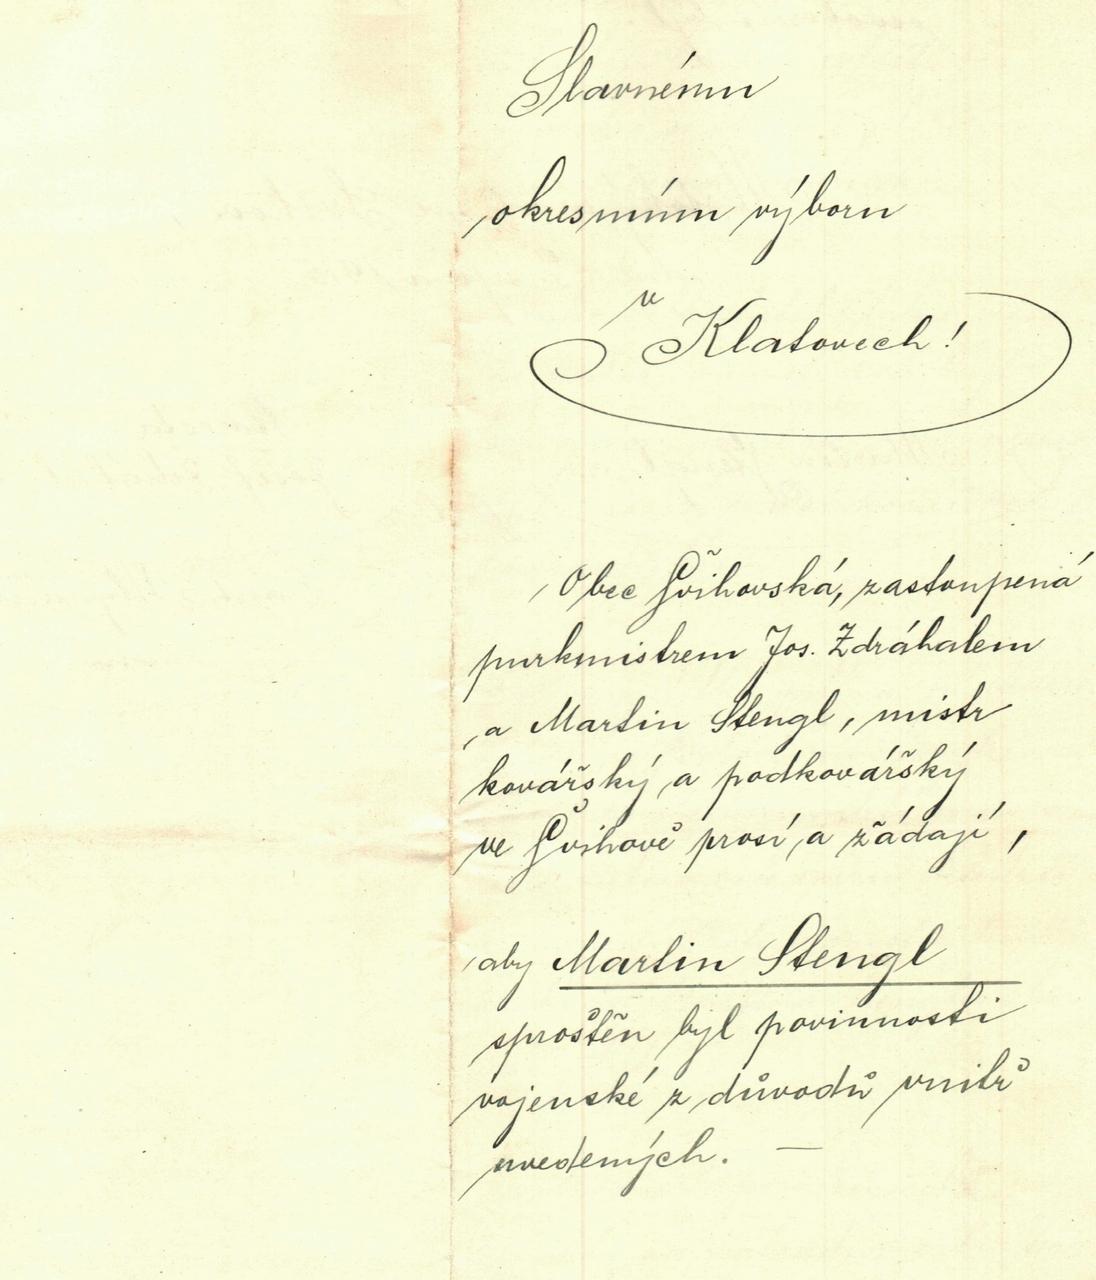 Slavnému
okresnímu výboru
v
Klatovech!
Obec Švihovská, zastoupená
purkmistrem Jos. Zdráhalem
a Martin Stengl, mistr
kovářský a podkovářský
ve Švihově prosí a žádají,
aby Martin Stengl
sproštěn byl povinnosti
vojenské z důvodů vnitř
uvedených. —